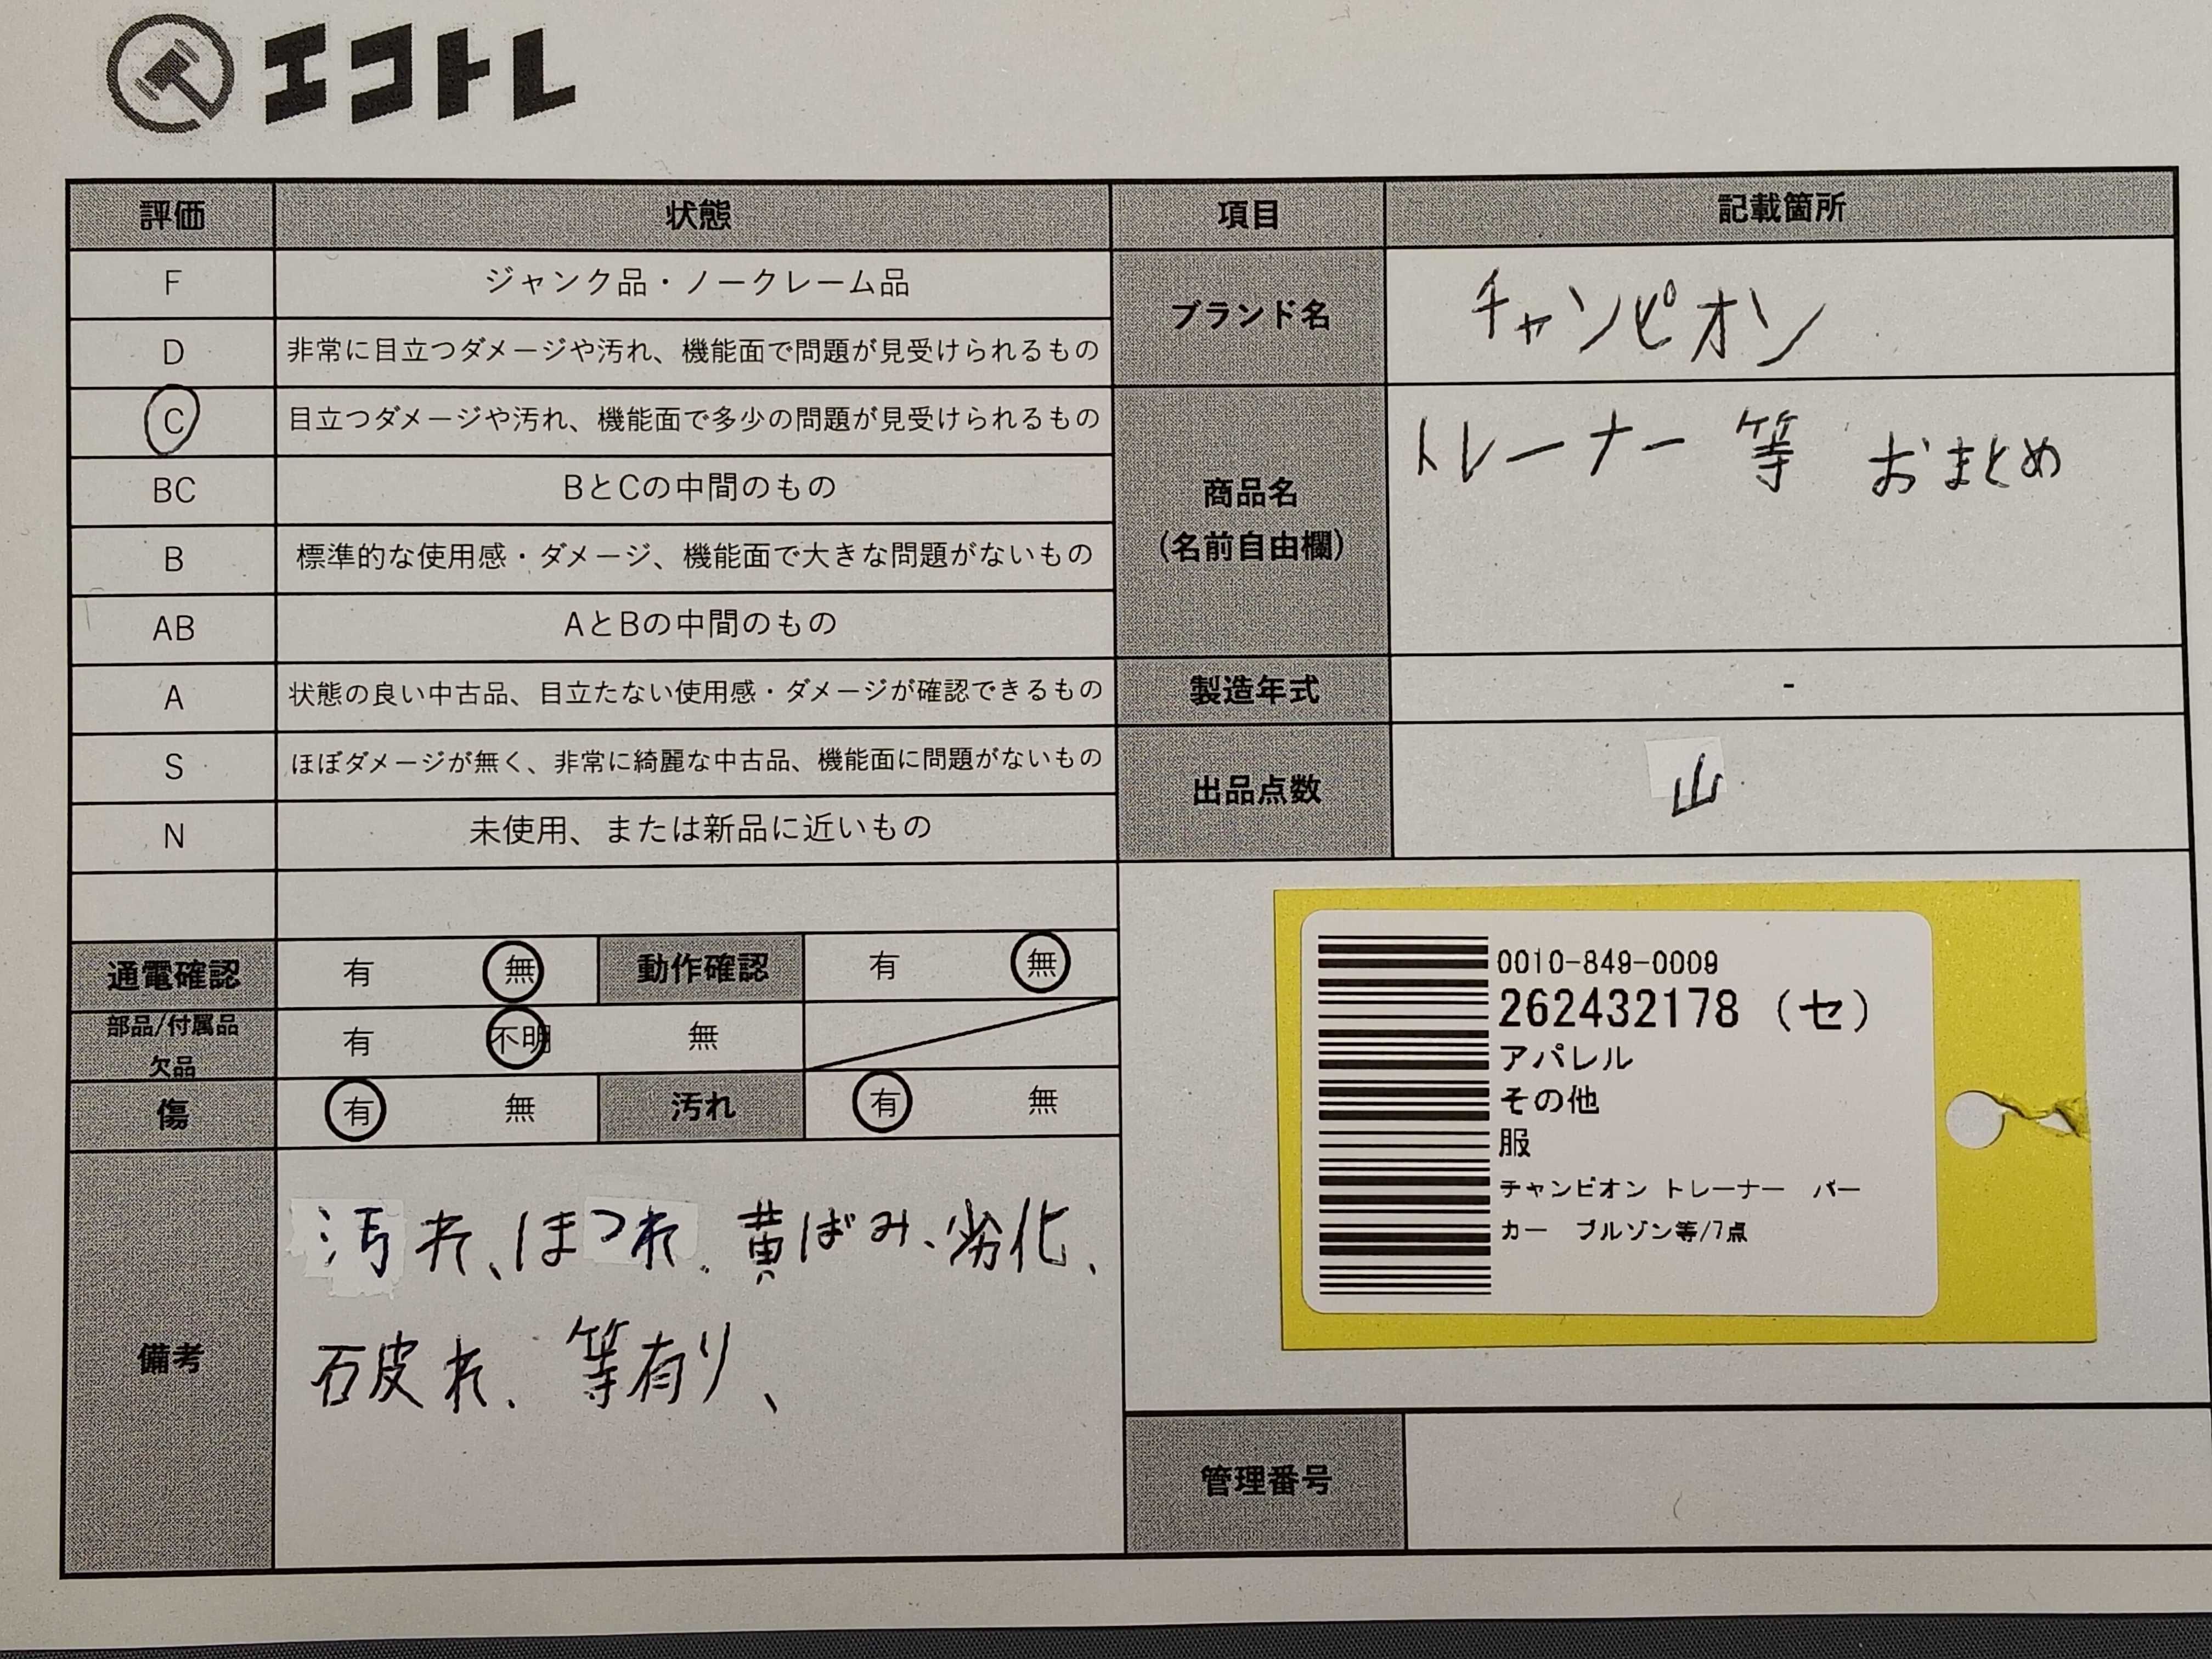 エコトレ
評価 状態 項目 記載箇所
F ジャンク品・ノークレーム品
D 非常に目立つダメージや汚れ、機能面で問題が見受けられるもの
C 目立つダメージや汚れ、機能面で多少の問題が見受けられるもの
BC BとCの中間のもの
B 標準的な使用感・ダメージ、機能面で大きな問題がないもの
AB AとBの中間のもの
A 状態の良い中古品、目立たない使用感・ダメージが確認できるもの
S ほぼダメージが無く、非常に綺麗な中古品、機能面に問題がないもの
N 未使用、または新品に近いもの
ブランド名 チャンピオン
商品名
(名前自由欄)
トレーナー 等 おまとめ
製造年式 -
出品点数 山
通電確認 有 無 動作確認 有 無
部品/付属品
欠品
有 不明 無
傷 有 無 汚れ 有 無
備考
汚れ、ほつれ、黄ばみ、劣化、
破れ、等有り、
0010-849-0009
262432178 (セ)
アパレル
その他
服
チャンピオン トレーナー パー
カー ブルゾン等/7点
管理番号